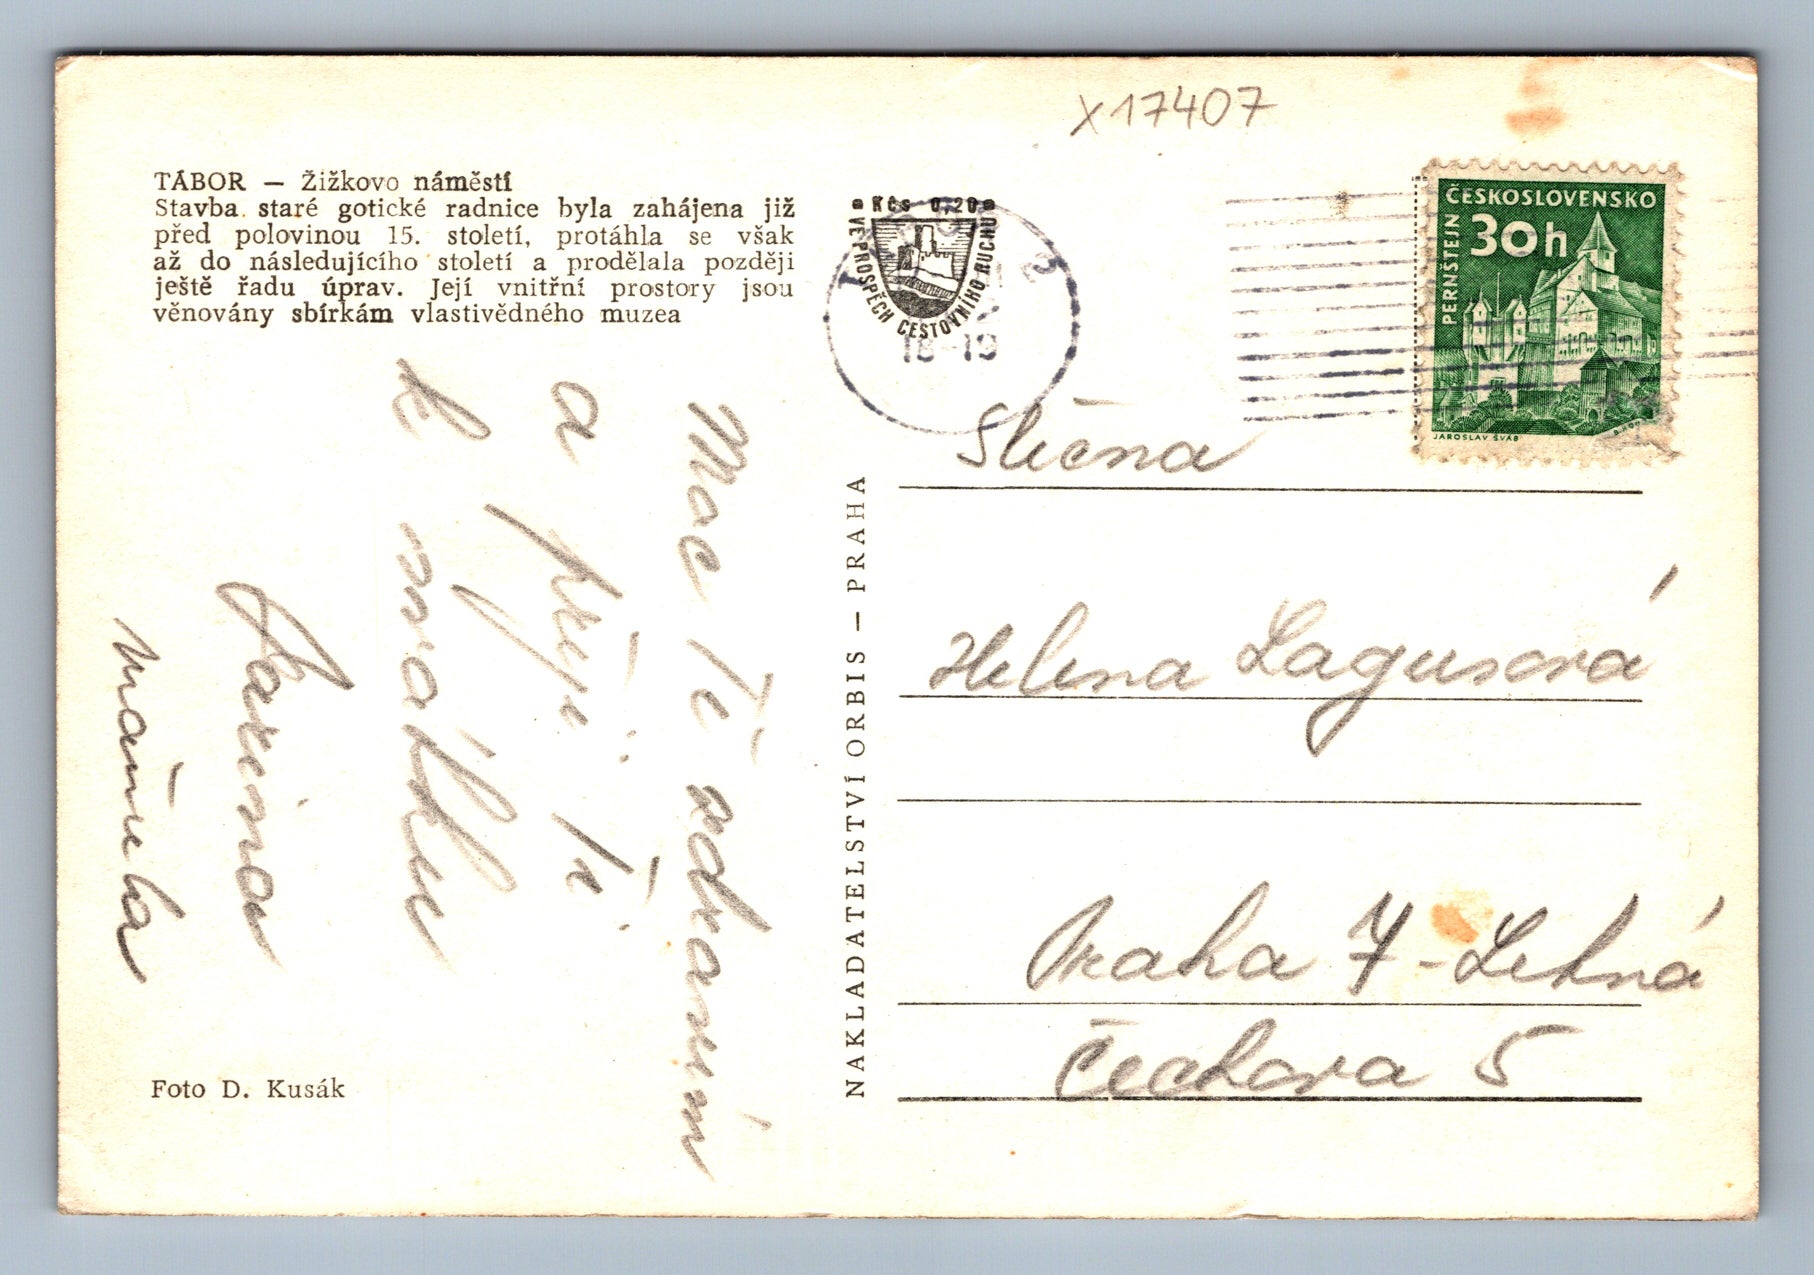 X17407
TÁBOR — Žižkovo náměstí
Stavba staré gotické radnice byla zahájena již
před polovinou 15. století, protáhla se však
až do následujícího století a prodělala později
ještě řadu úprav. Její vnitřní prostory jsou
věnovány sbírkám vlastivědného muzea
Kčs 0,20
VE PROSPĚCH CESTOVNÍHO RUCHU
18-19
ČESKOSLOVENSKO
30h
PERNŠTEJN
JAROSLAV ŠVÁB
Moc Tě zdravím
a přeji Ti
k svátku
mamička
Foto D. Kusák
NAKLADATELSTVÍ ORBIS — PRAHA
Slečna
Helena Lagusová
Praha 7 - Letná
Čechova 5